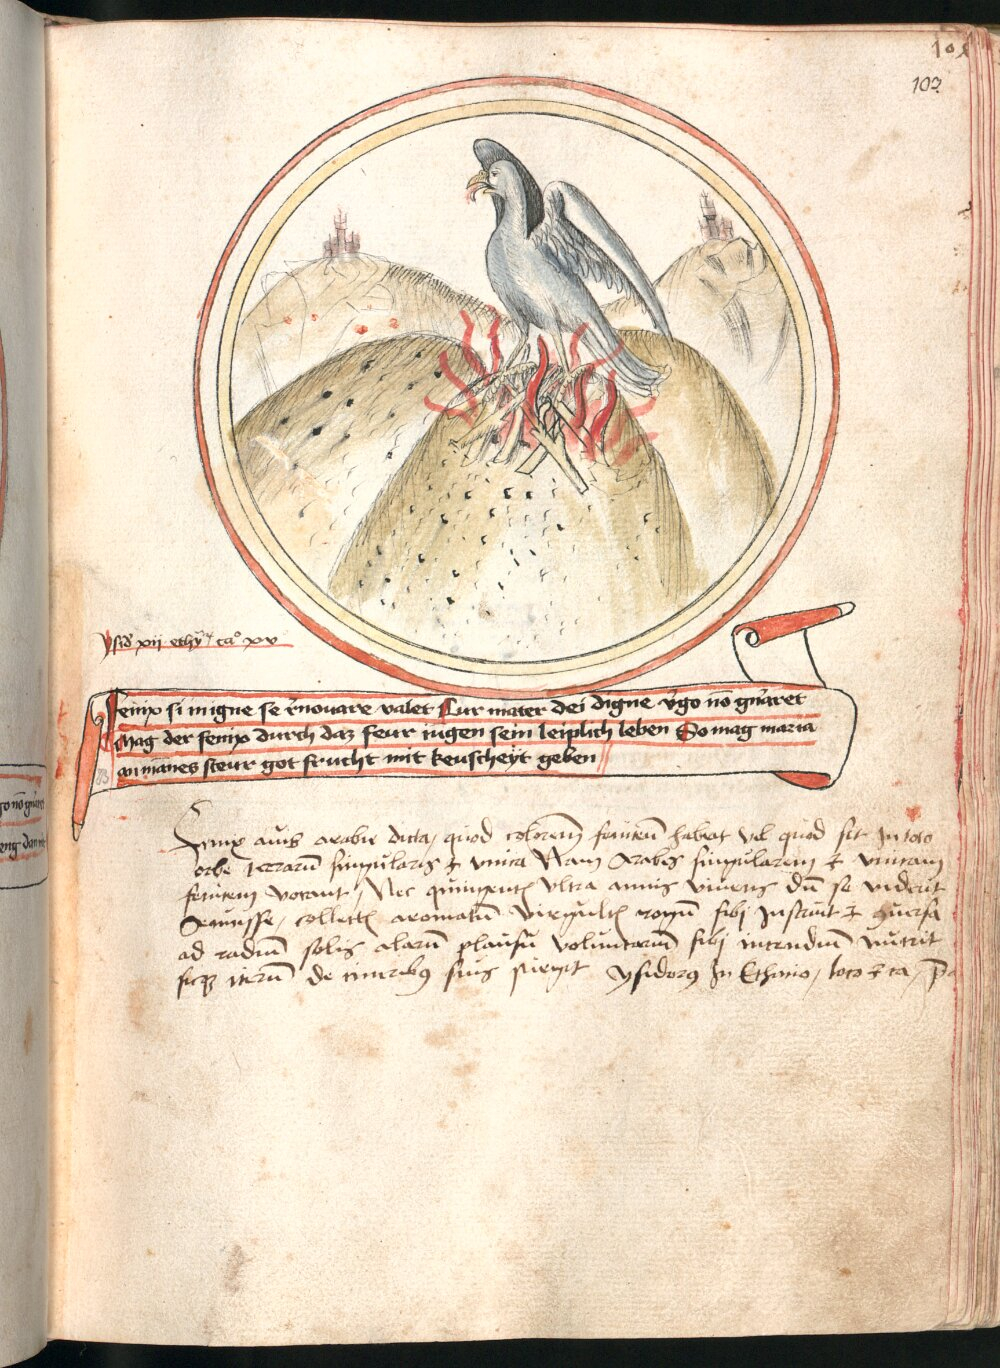 102
ysid' xii ethy' ca° xv
Fenix si in igne se r̄novare valet Cur mater dei digne v̄go nō gn̄aret
Mag der fenix durch daz feur iugen sein leiplich leben So mag maria
an mānes steur got frucht mit keuscheyt geben
Fenix avis arabie dicta, quod colorem feniceū habeat vel quod sit in toto
orbe terrarū singularis et vnica Nam Arabes singularem et vnicam
fenicem vocant, Nec quingentis vltra annis vivens dū se viderit
senuisse, collectis aromatū virgultis rogū sibi instruit et conversa
ad radiū solis alarū plausu voluntariū sibi incendiū nutrit
sicque iterū de cineribus suis surgit ysidorus In Ethimo, loco et ca,
go nō gn̄aret